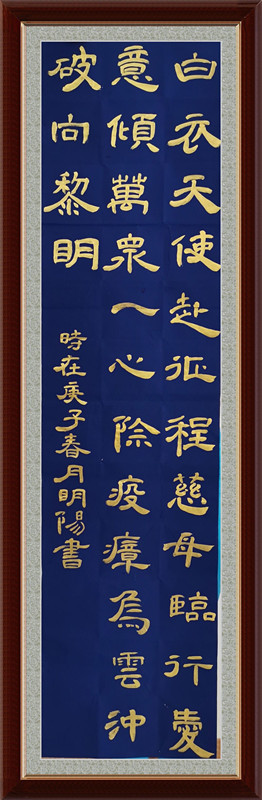 白衣天使赴征程慈母臨行愛
意傾萬眾一心除疫瘴為雲沖
破向黎明
時在庚子春月明陽書